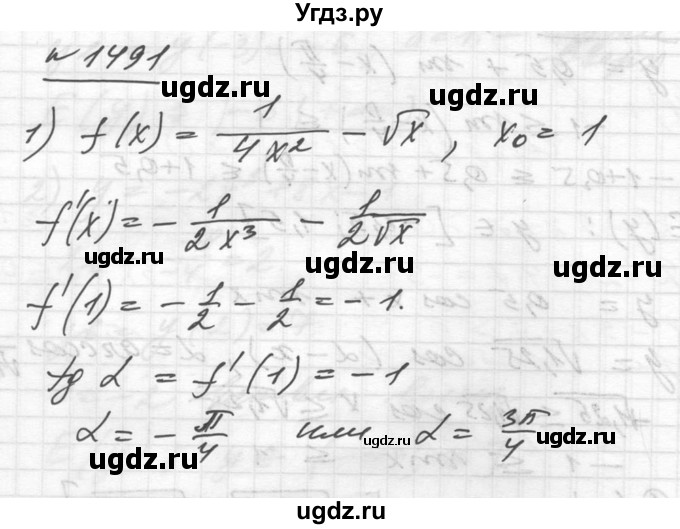 Угдз.ру
№ 1491
ugdz.ru ugdz.ru
1) f(x) = 1/(4x²) − √x, x₀ = 1
f'(x) = − 1/(2x³) − 1/(2√x)
ugdz.ru ugdz.ru ugdz.ru
f'(1) = − 1/2 − 1/2 = − 1.
tg α = f'(1) = − 1
α = − π/4 или α = 3π/4
ugdz.ru ugdz.ru ugdz.ru
ugdz.ru